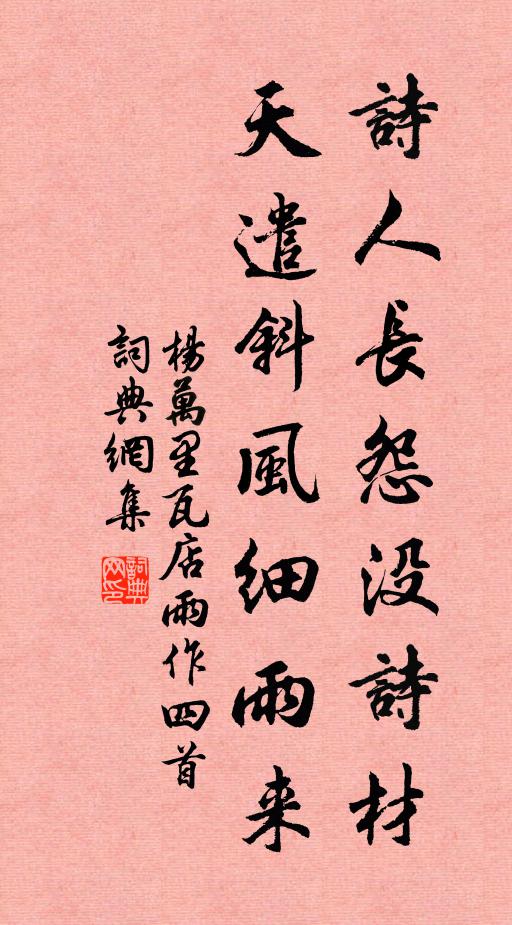 詩人長怨没詩材
天遣斜風細雨来
楊萬里瓦店雨作四首
詞典網集
詞典网印